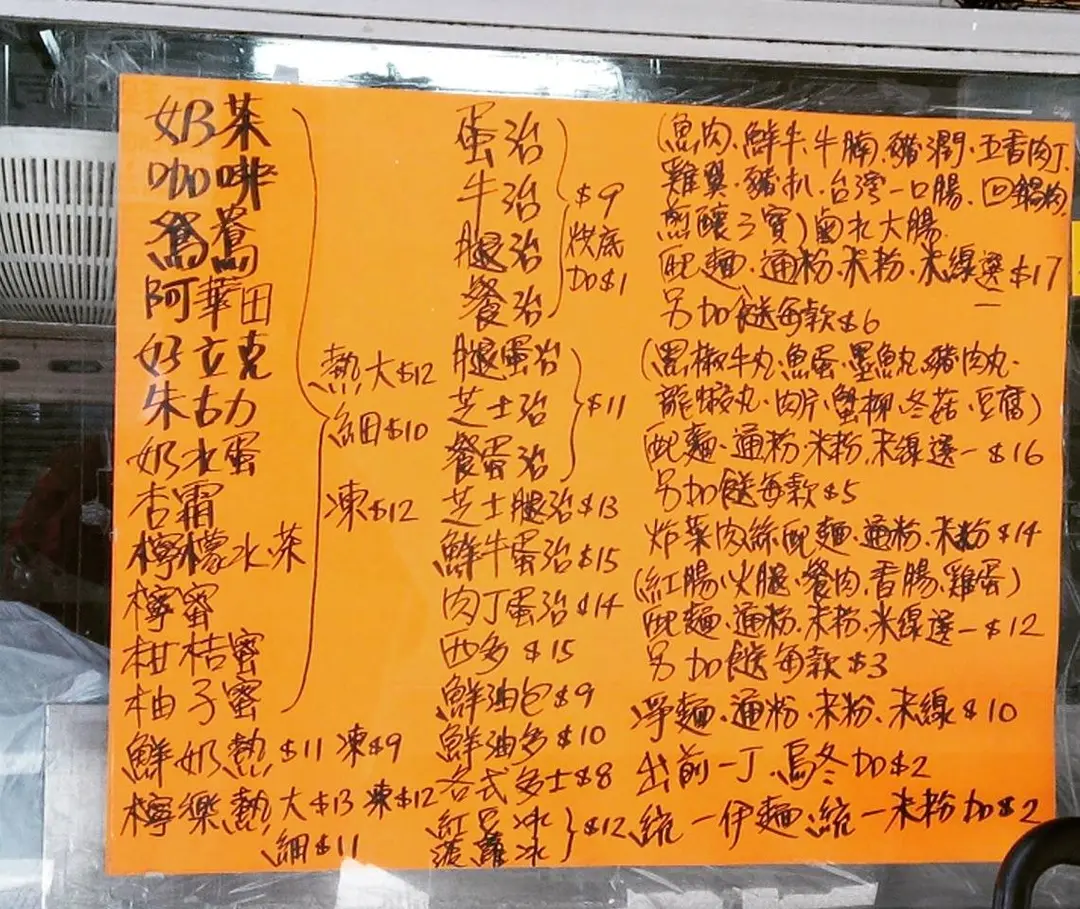 奶茶
咖啡
鴛鴦
阿華田
好立克
朱古力
奶水蛋
杏霜
檸檬水茶
檸蜜
柑桔蜜
柚子蜜
熱大$12
細$10
凍$12
鮮奶熱$11 凍$9
檸樂熱大$13 凍$12
細$11
蛋治
牛治
腿治
餐治
$9
烘底
加$1
腿蛋治
芝士治
餐蛋治
$11
芝士腿治$13
鮮牛蛋治$15
肉丁蛋治$14
西多$15
鮮油包$9
鮮油多$10
各式多士$8
紅豆冰
菠蘿冰
$12
(魚肉、鮮牛、牛腩、豬潤、五香肉丁、
雞翼、豬扒、台灣一口腸、回鍋肉
煎釀三寶)鹵水大腸
配麵、通粉、米粉、米線選一$17
另加餸每款$6
(黑椒牛丸、魚蛋、墨魚丸、豬肉丸、
龍蝦丸、肉片、蟹柳、冬菇、豆腐)
配麵、通粉、米粉、米線選一$16
另加餸每款$5
炸菜肉絲配麵、通粉、米粉$14
(紅腸、火腿、餐肉、香腸、雞蛋)
配麵、通粉、米粉、米線選一$12
另加餸每款$3
淨麵、通粉、米粉、米線$10
出前一丁、烏冬加$2
統一伊麵、統一米粉加$2